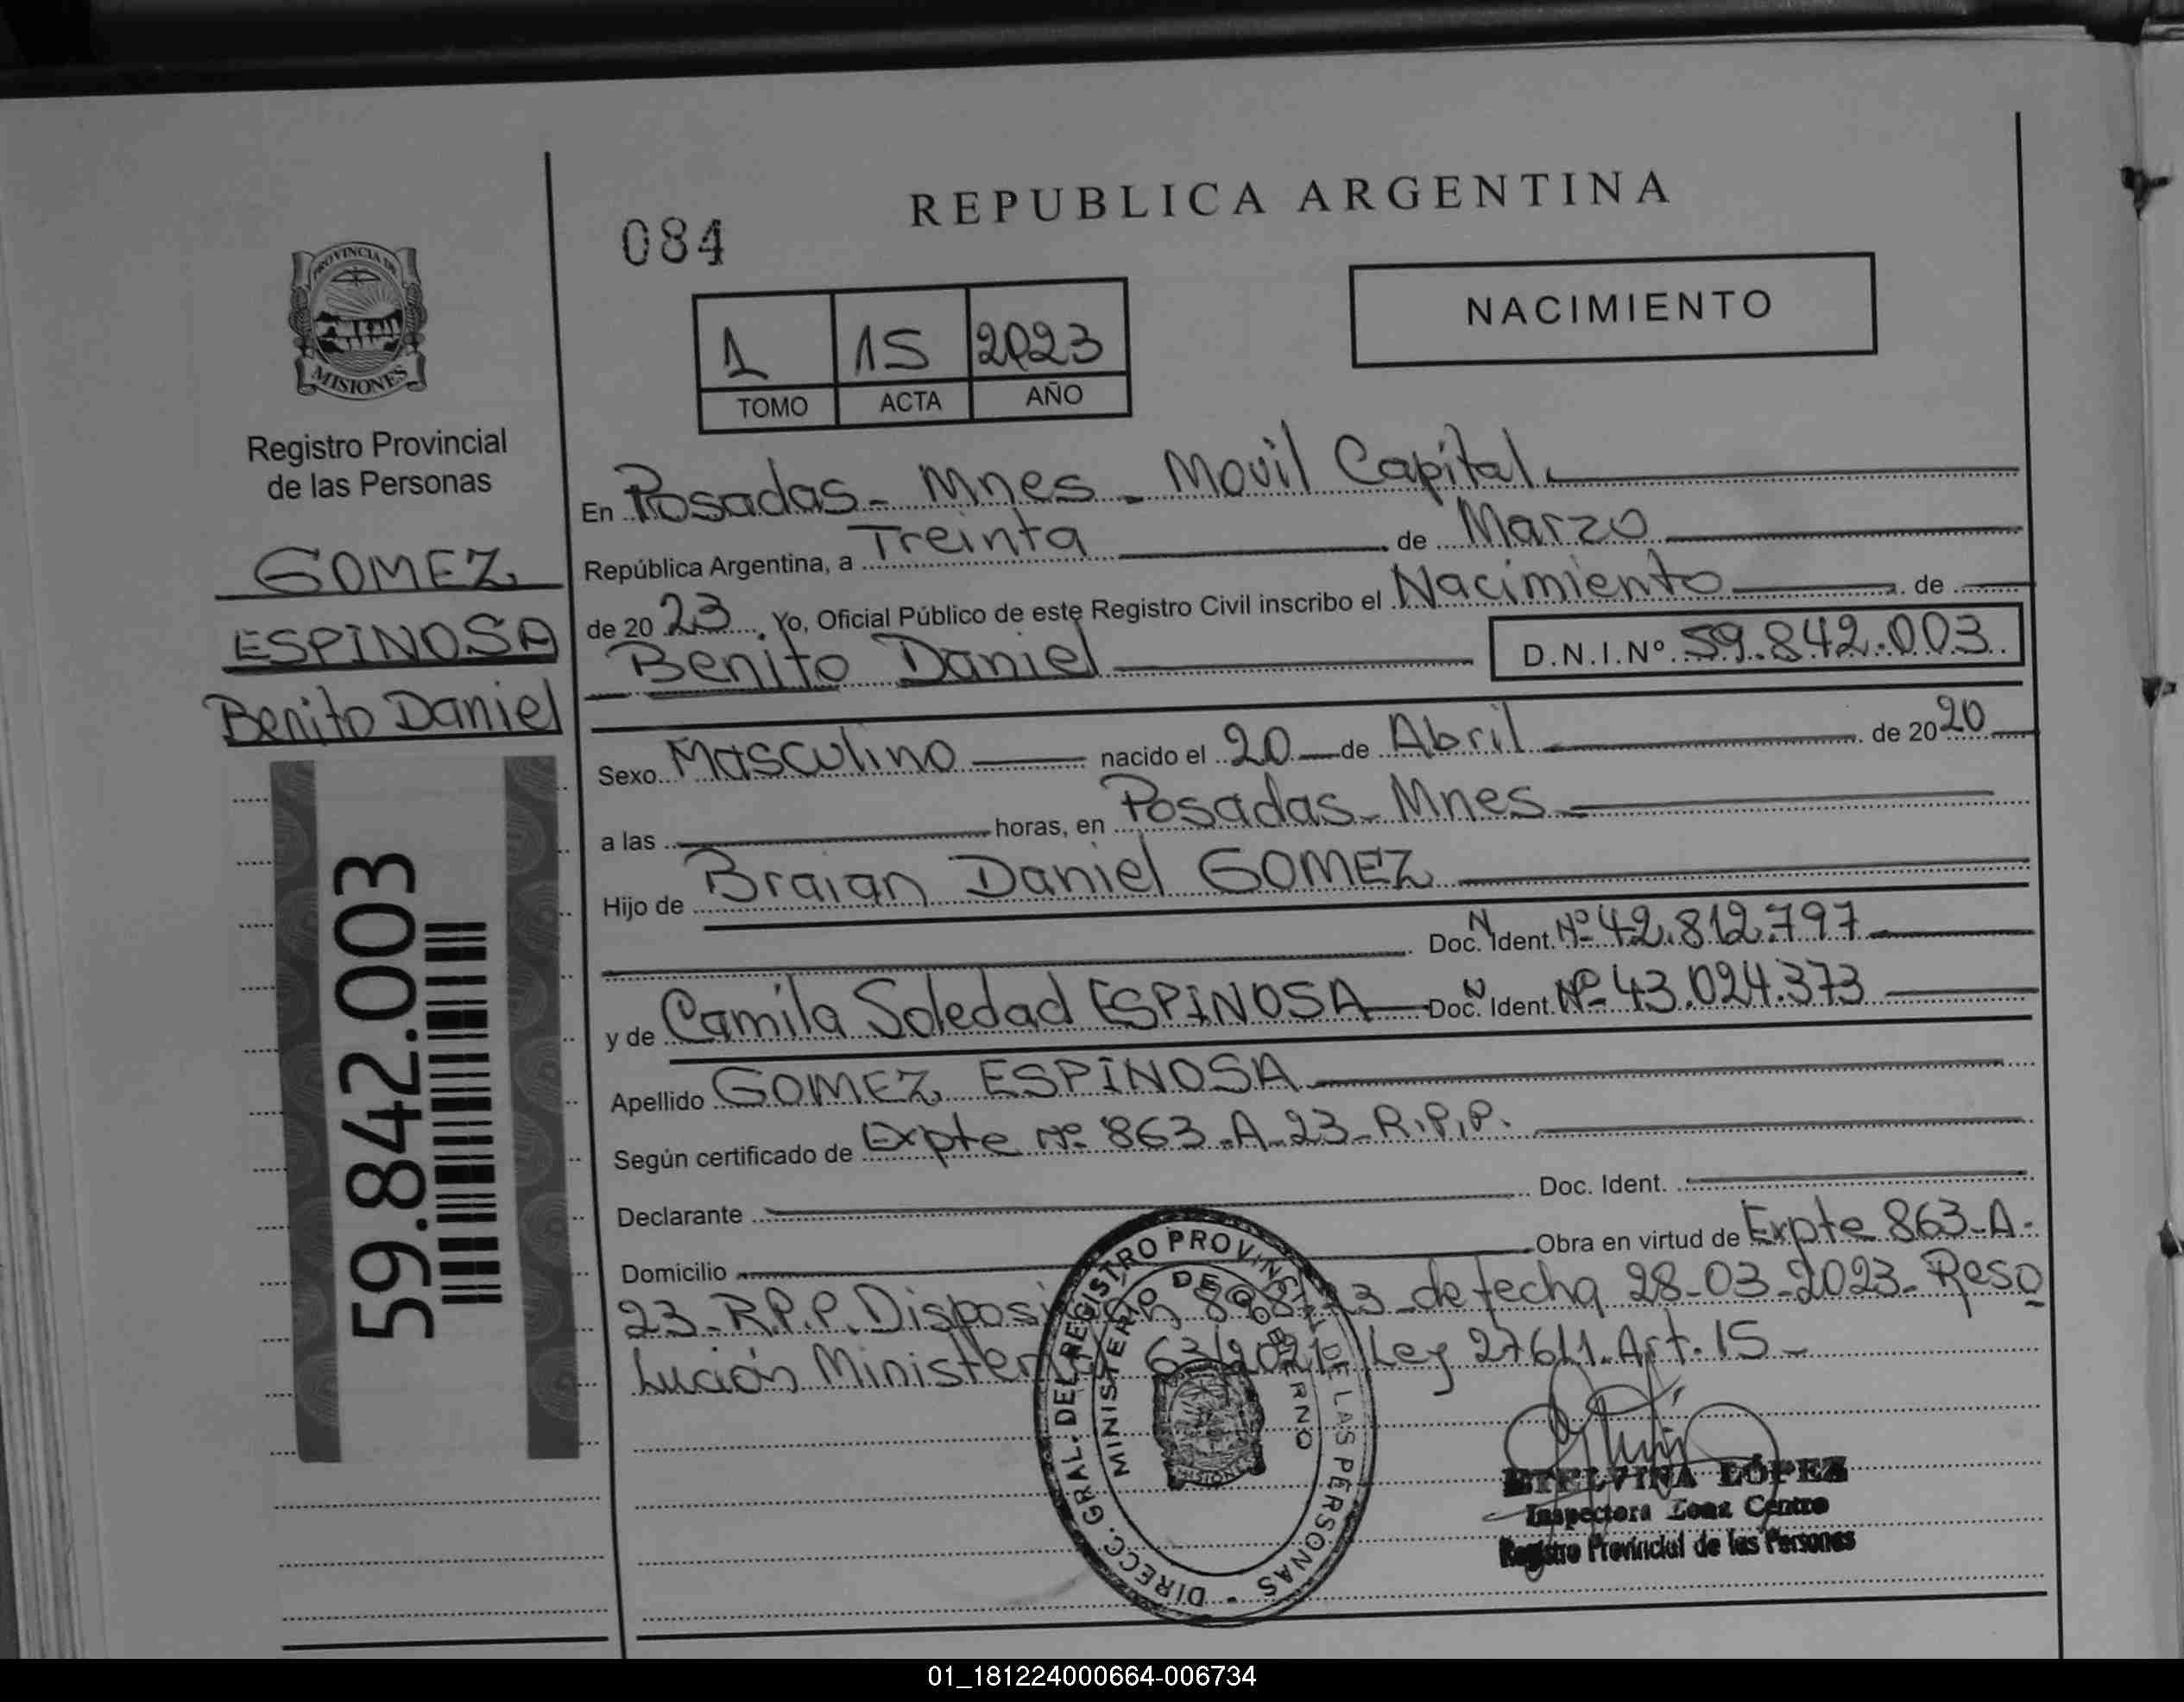 REPUBLICA ARGENTINA
084
PROVINCIA DE
MISIONES
NACIMIENTO
1 15 2023
TOMO ACTA AÑO
Registro Provincial
de las Personas
GOMEZ
ESPINOSA
Benito Daniel
59.842.003
En Posadas - Mnes - Movil Capital.
República Argentina, a Treinta de Marzo
de 20 23. Yo, Oficial Público de este Registro Civil inscribo el Nacimiento de
Benito Daniel D.N.I.Nº 59.842.003
Sexo Masculino nacido el 20 de Abril de 20 20
a las horas, en Posadas - Mnes
Hijo de Braian Daniel GOMEZ
Doc. N Ident. Nº 42.812.797
y de Camila Soledad ESPINOSA Doc. N Ident. Nº 43.024.373
Apellido GOMEZ ESPINOSA
Según certificado de Expte Nº 863-A-23-R.P.P.
Declarante Doc. Ident.
Domicilio Obra en virtud de Expte 863-A-
23-R.P.P. Disposición de fecha 28-03-2023- Reso
lución Ministerial 63/2021 Ley 27611. Art. 15 -
DIRECC. GRAL. DEL REGISTRO PROVINCIAL DE LAS PERSONAS -
MINISTERIO DE GOBIERNO
MISIONES
ETELVINA LÓPEZ
Inspectora Zona Centro
Registro Provincial de las Personas
01_181224000664-006734